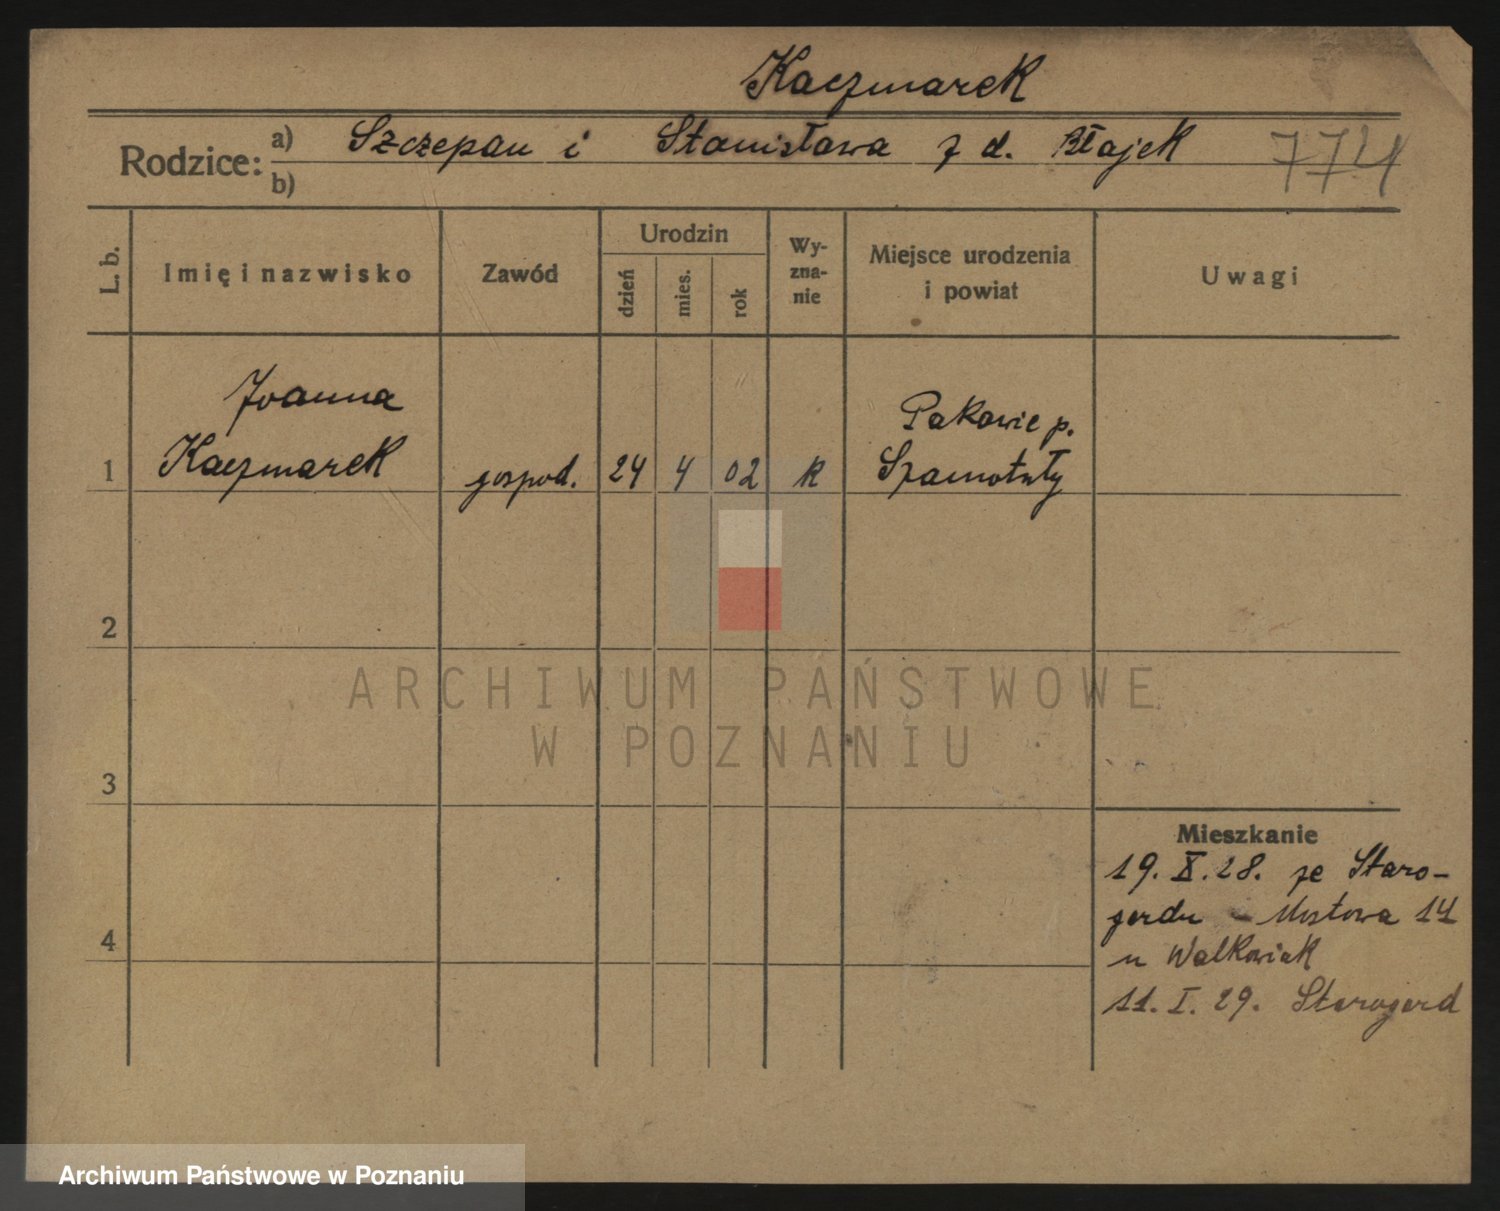 Kaczmarek
Rodzice: a) Szczepan i Stanisława z d. Błajek
b)
774
L. b.
Imię i nazwisko
Zawód
Urodzin
dzień
mies.
rok
Wy-
zna-
nie
Miejsce urodzenia
i powiat
Uwagi
Joanna
Pakawie p.
1 Kaczmarek gospod. 24 4 02 k Szamotuły
2
ARCHIWUM PAŃSTWOWE
W POZNANIU
3
Mieszkanie
19. X. 28. ze Staro-
gardu - Mostowa 14
4
u Walkowiak
11. I. 29. Starogard
Archiwum Państwowe w Poznaniu